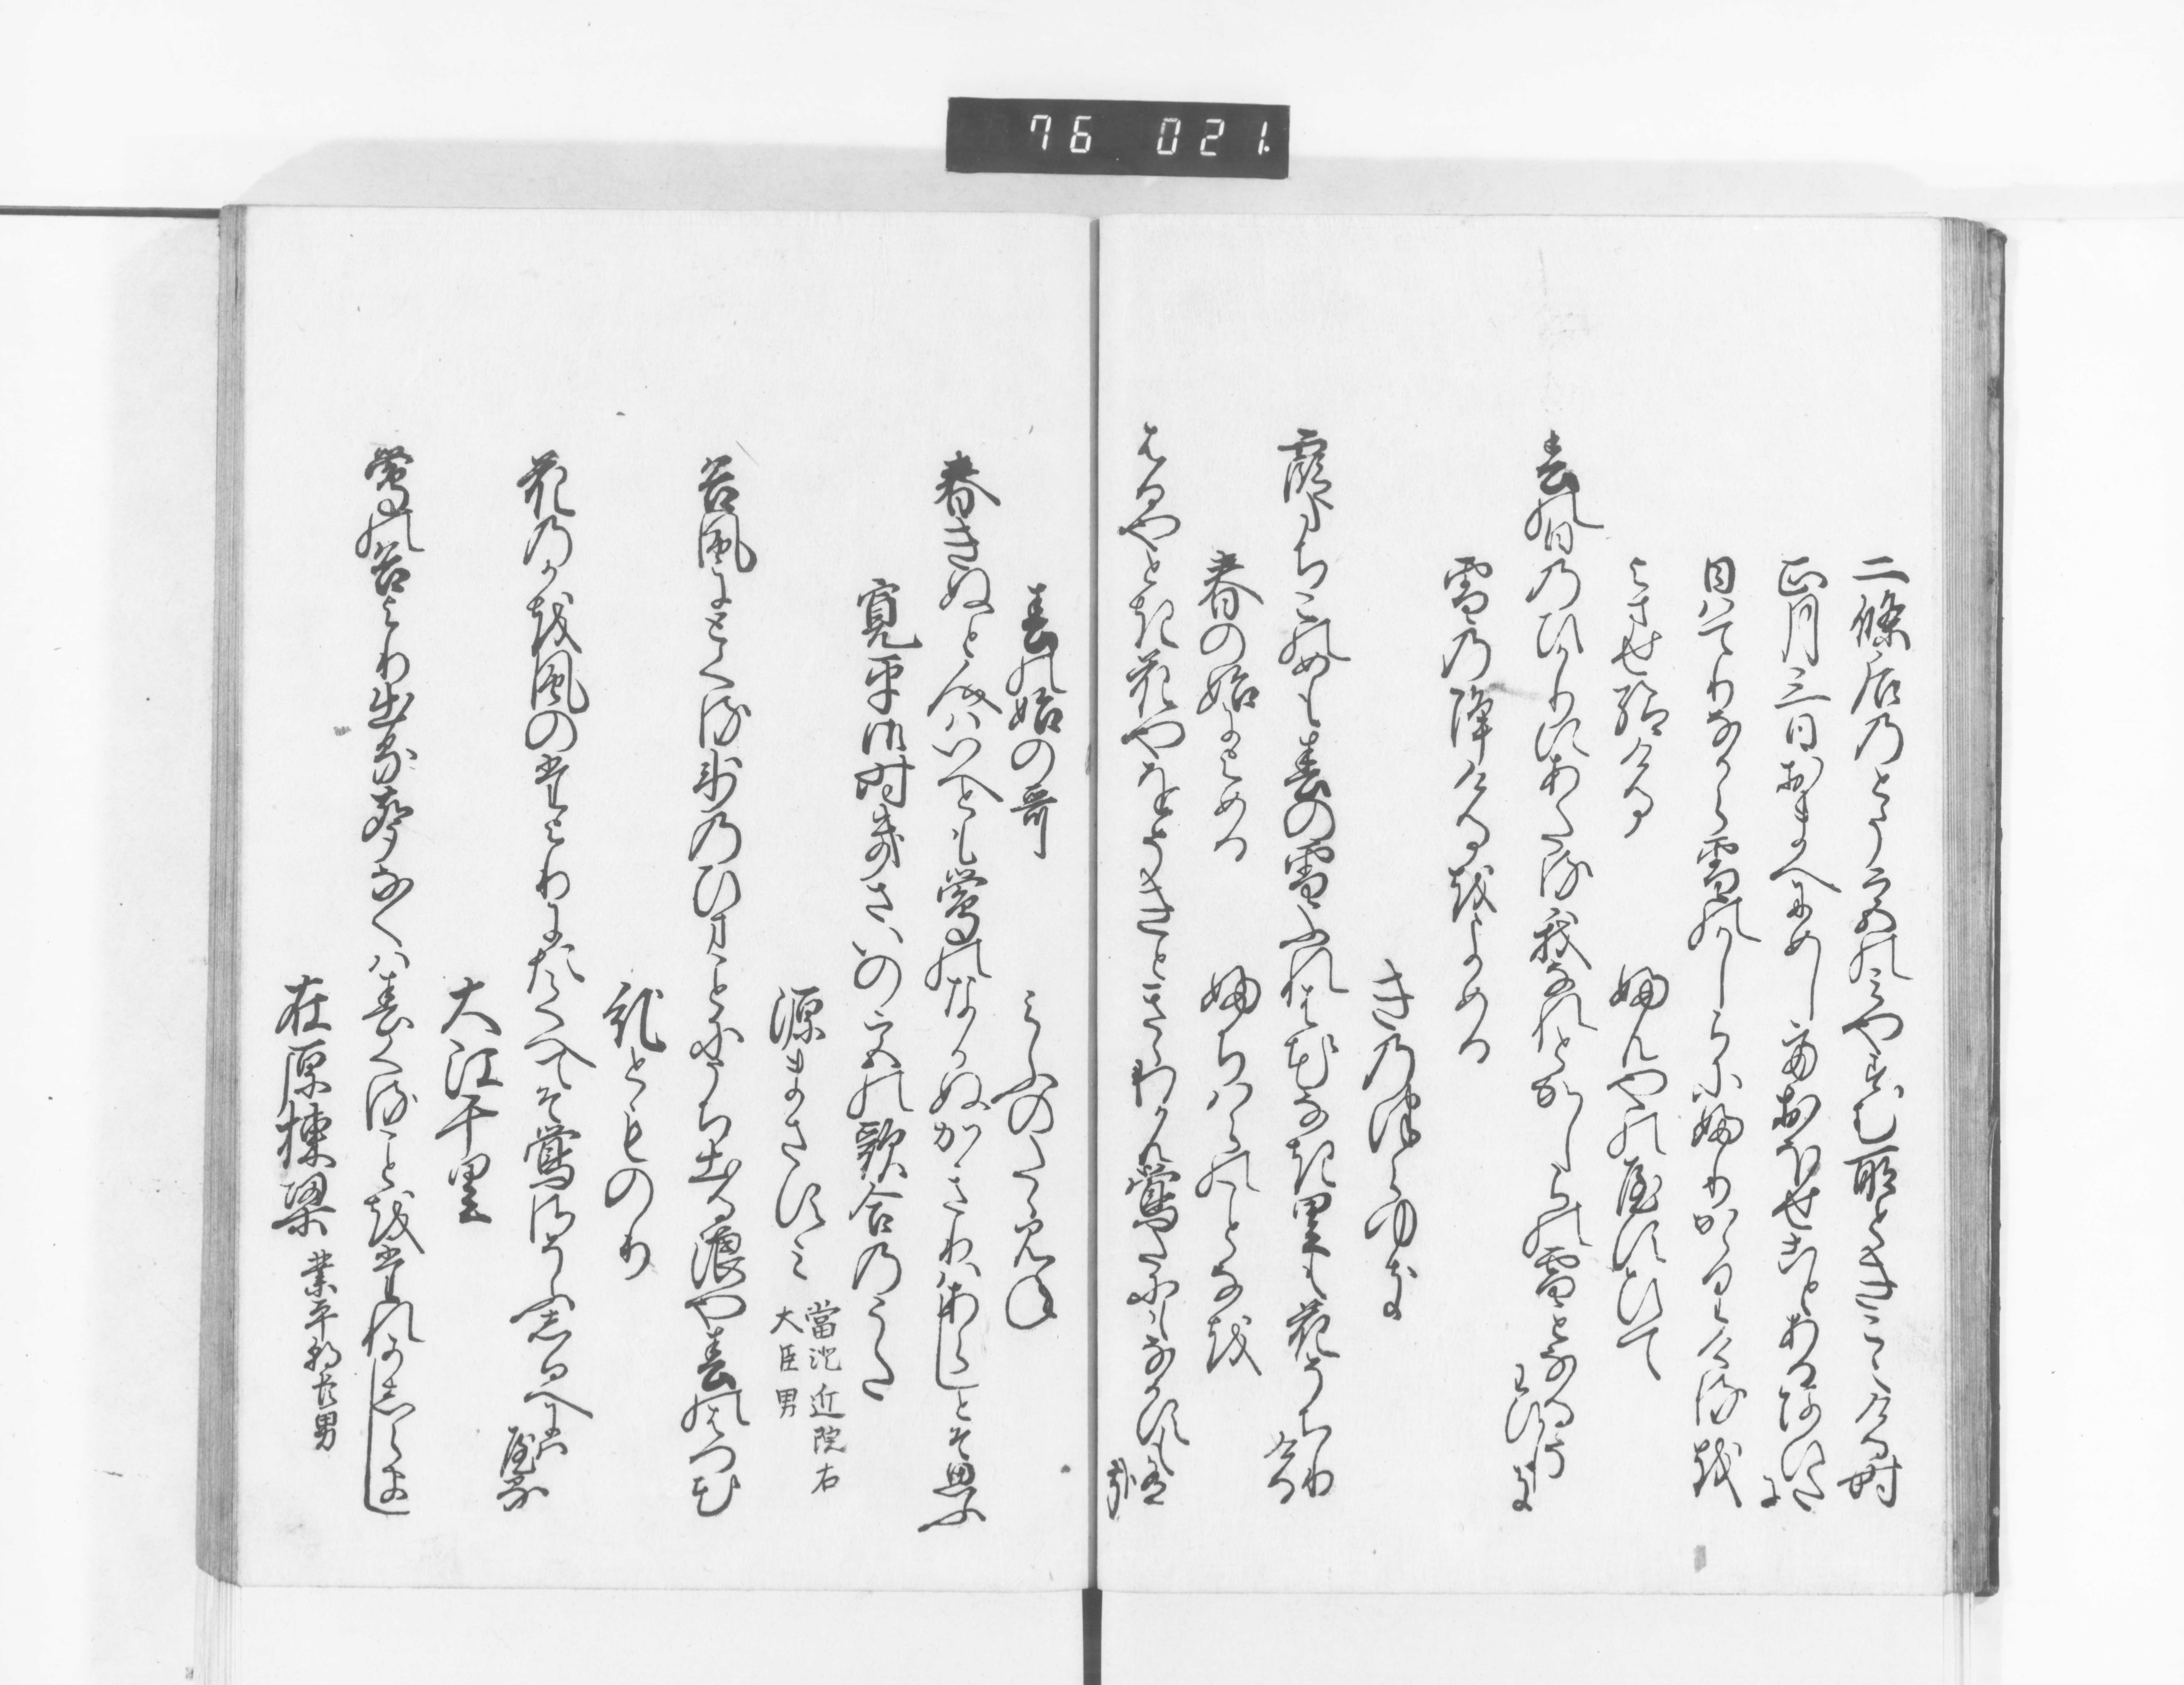 二條后乃とう宮のみやすむ所ときこえける時
正月三日おまへにめしておほせことあるあひたに
日はてりなから雪のかしらにふりかゝりけるを
よませ給ける
ふんやのやすひて
春の日乃ひかりにあたる我なれとかしらの雪となるそわひしき
雪乃降けるをよめる
き乃つらゆき
霞たちこのめも春の雪ふれは花なき里も花そちりける
春の始によめる
ふちはらのことなを
はるやとき花やをそきときゝわかん鶯たにもなかすもある哉
春の始の哥
みふのたゝみね
春きぬと人はいへとも鶯のなかぬかきりはあらしとそ思ふ
寛平御時きさいの宮の歌合乃うた
源まさすみ 當純近院右大臣男
谷風にとくる氷乃ひまことにうち出る浪や春のはつ花
紀とものり
花乃かを風のたよりにたくへてそ鶯さそふしるへにはやる
大江千里
鶯の谷よりいつる聲なくは春くることをたれかしらまし
在原棟梁 業平朝臣男